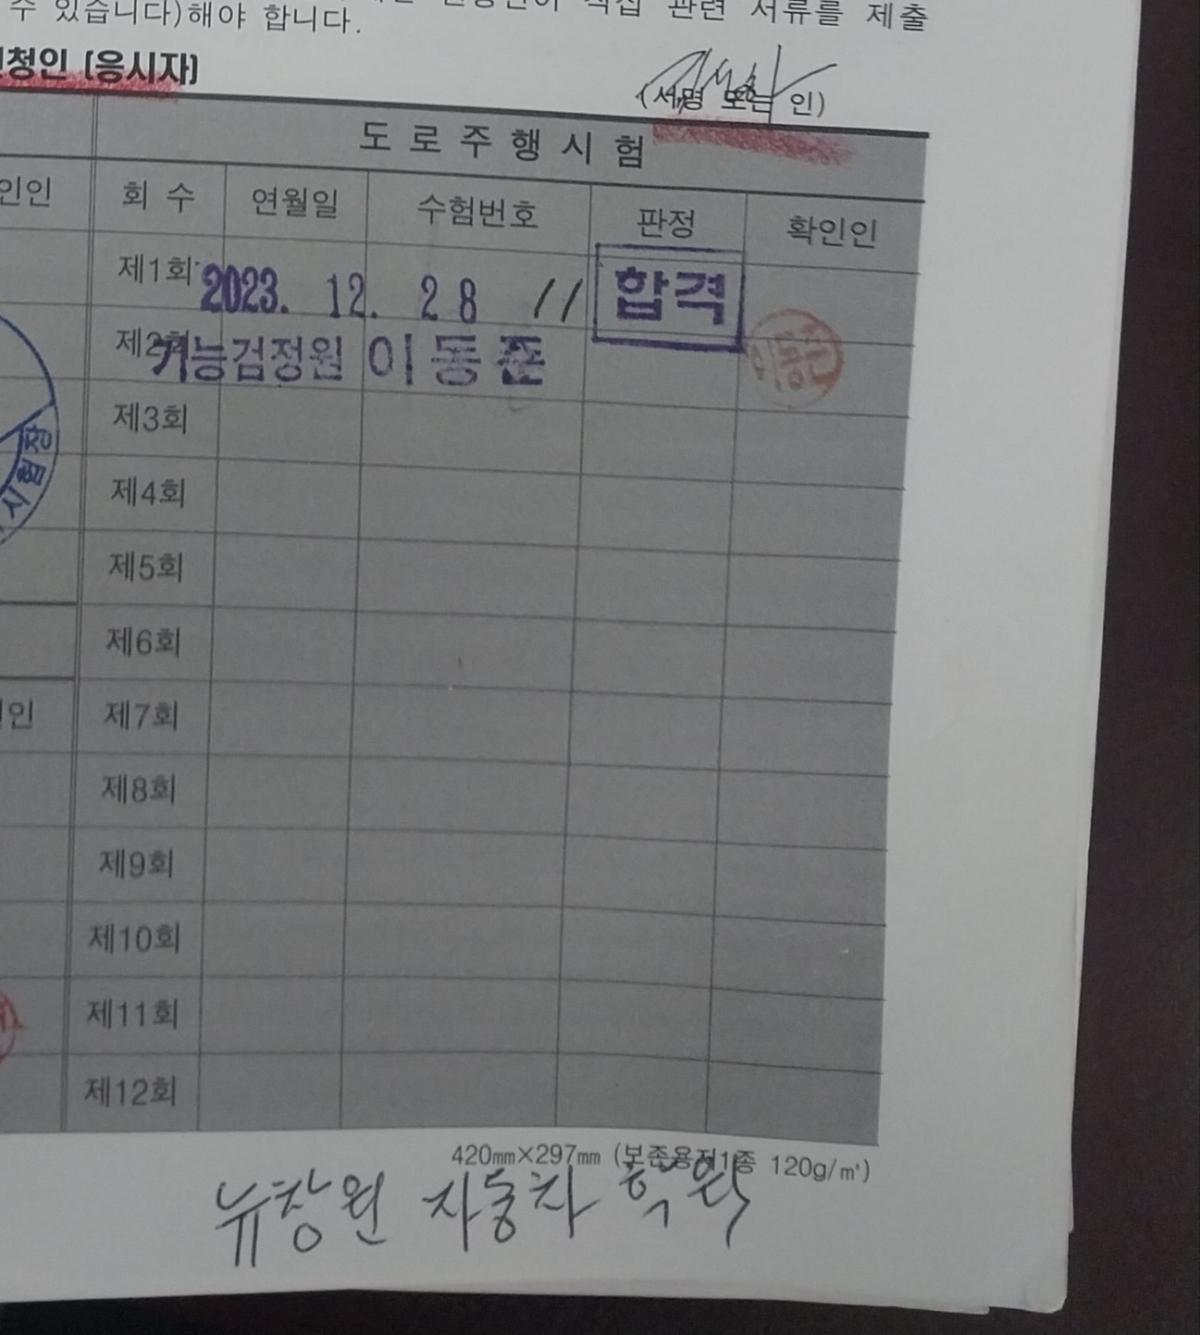 수 있습니다)해야 합니다.
직접 관련 서류를 제출
청인 (응시자)
(서명 또는 인)
도로주행시험
인인 회 수 연월일 수험번호 판정 확인인
제1회 2023. 12. 28 // 합격
제2회 기능검정원 이동준
제3회
시험장
제4회
제5회
제6회
인 제7회
제8회
제9회
제10회
제11회
제12회
420㎜×297㎜ (보존용지1종 120g/㎡)
뉴창원 자동차 학원